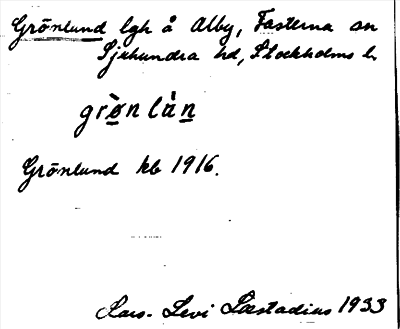 Grönlund lgh å Alby, Fasterna sn
Sjuhundra hd, Stockholms l.
grø̀n làn
Grönlund kb 1916.
Lars-Levi Læstadius 1933